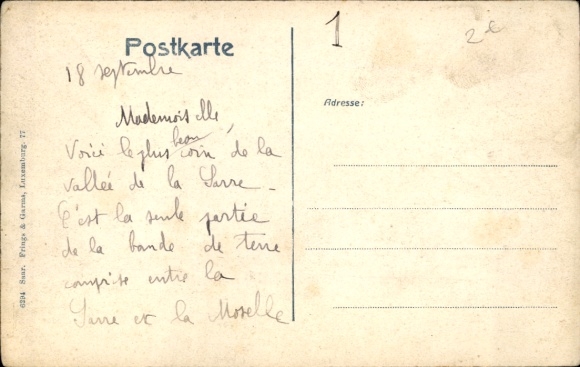 Postkarte
1
2 e
18 septembre
Mademoiselle,
beau
Voici le plus coin de la
vallée de la Sarre -
C'est la seule partie
de la bande de terre
comprise entre la
Sarre et la Moselle
Adresse:
6294 Saar. Frings & Garma, Luxemburg. 77